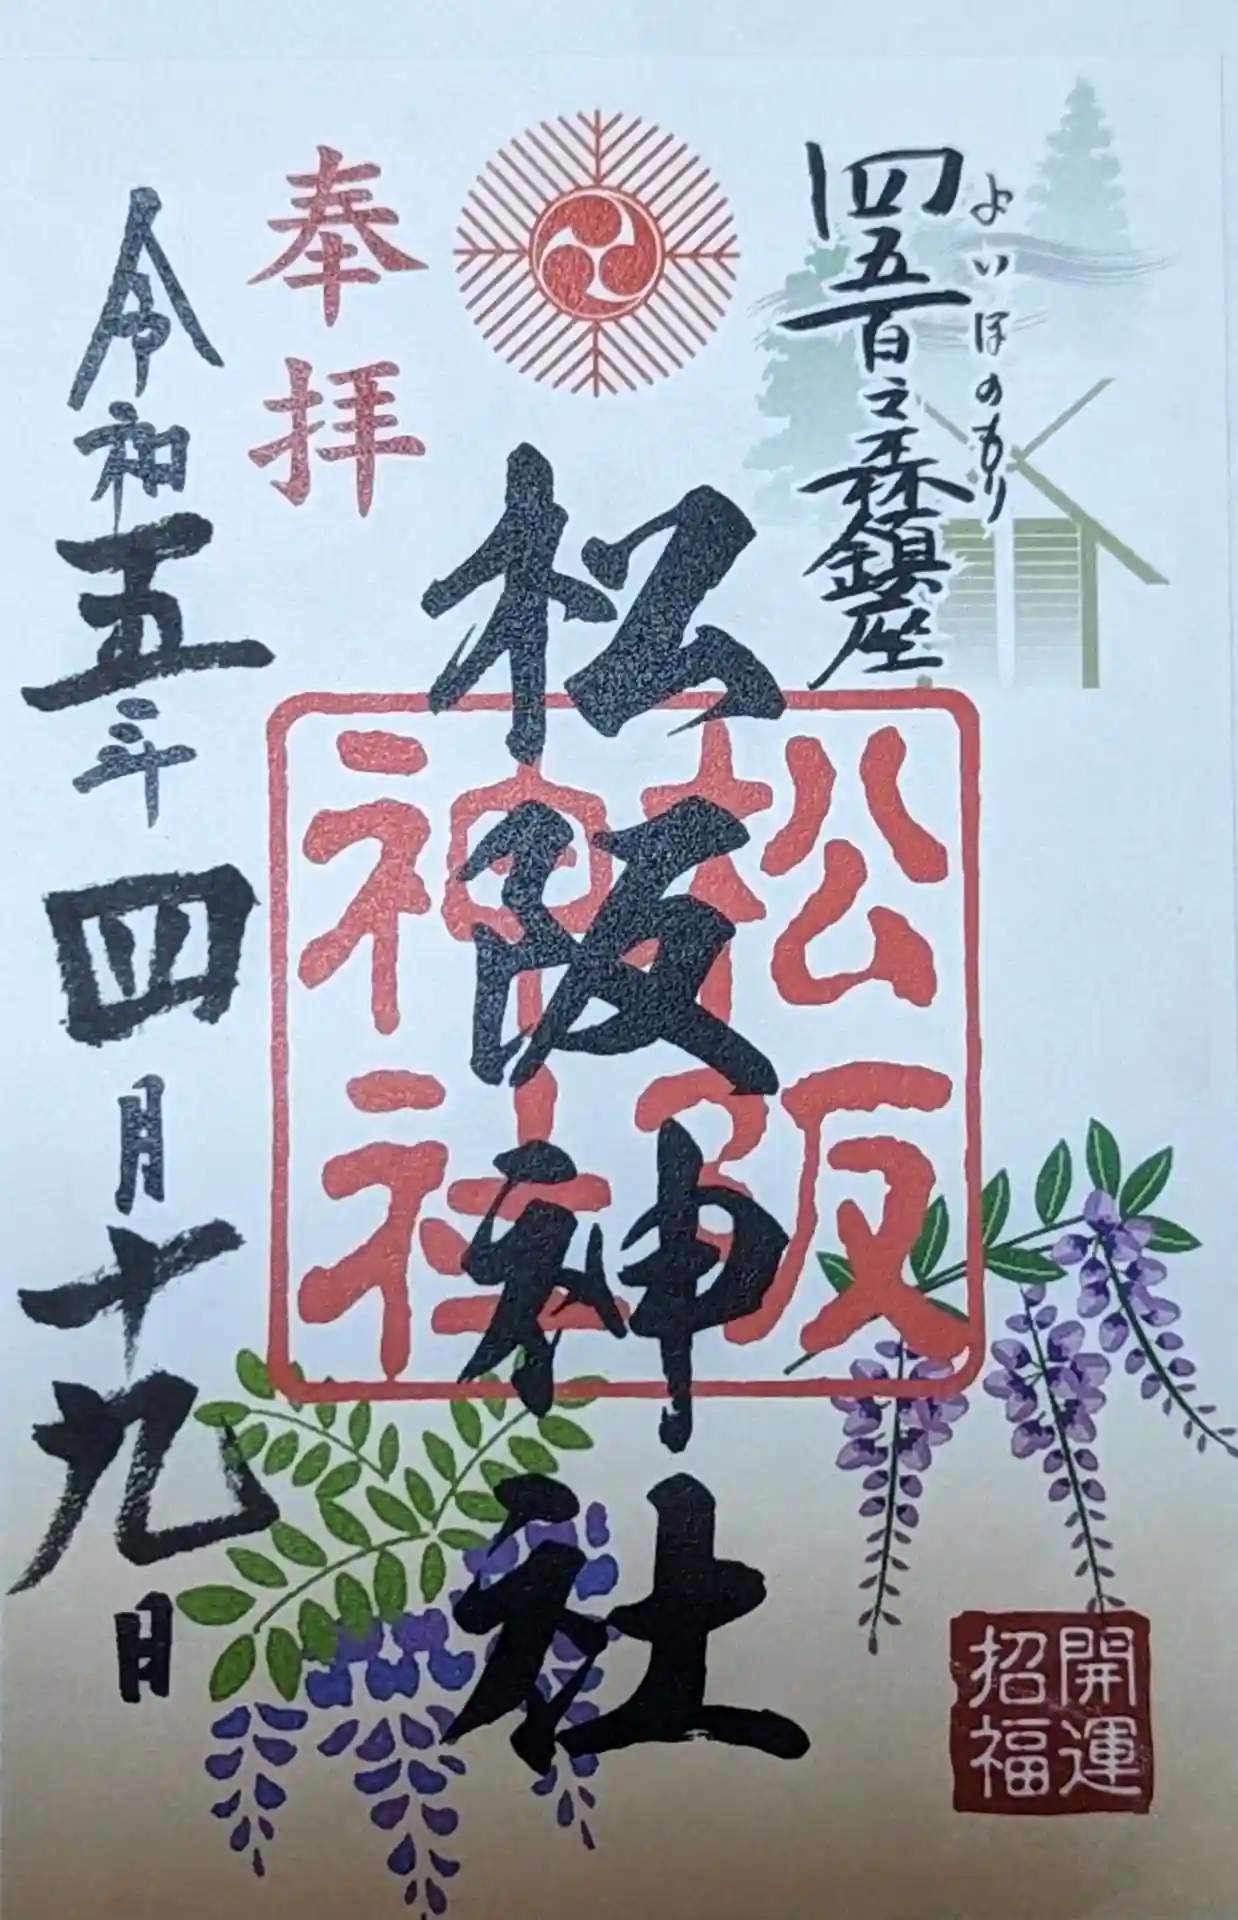 四五百之森鎮座
よいほのもり
奉拝
松阪神社
松阪
神社
令和五年四月十九日
開運
招福